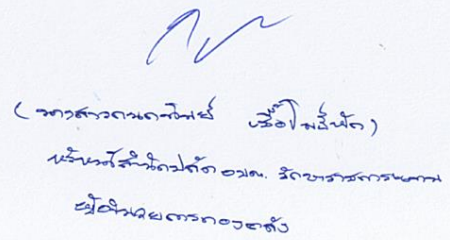 (นางสาวกนกทิพย์
หัวหน้าสำนักปลัด อบต. รักษาราชการแทน
ผู้อำนวยการกองคลัง